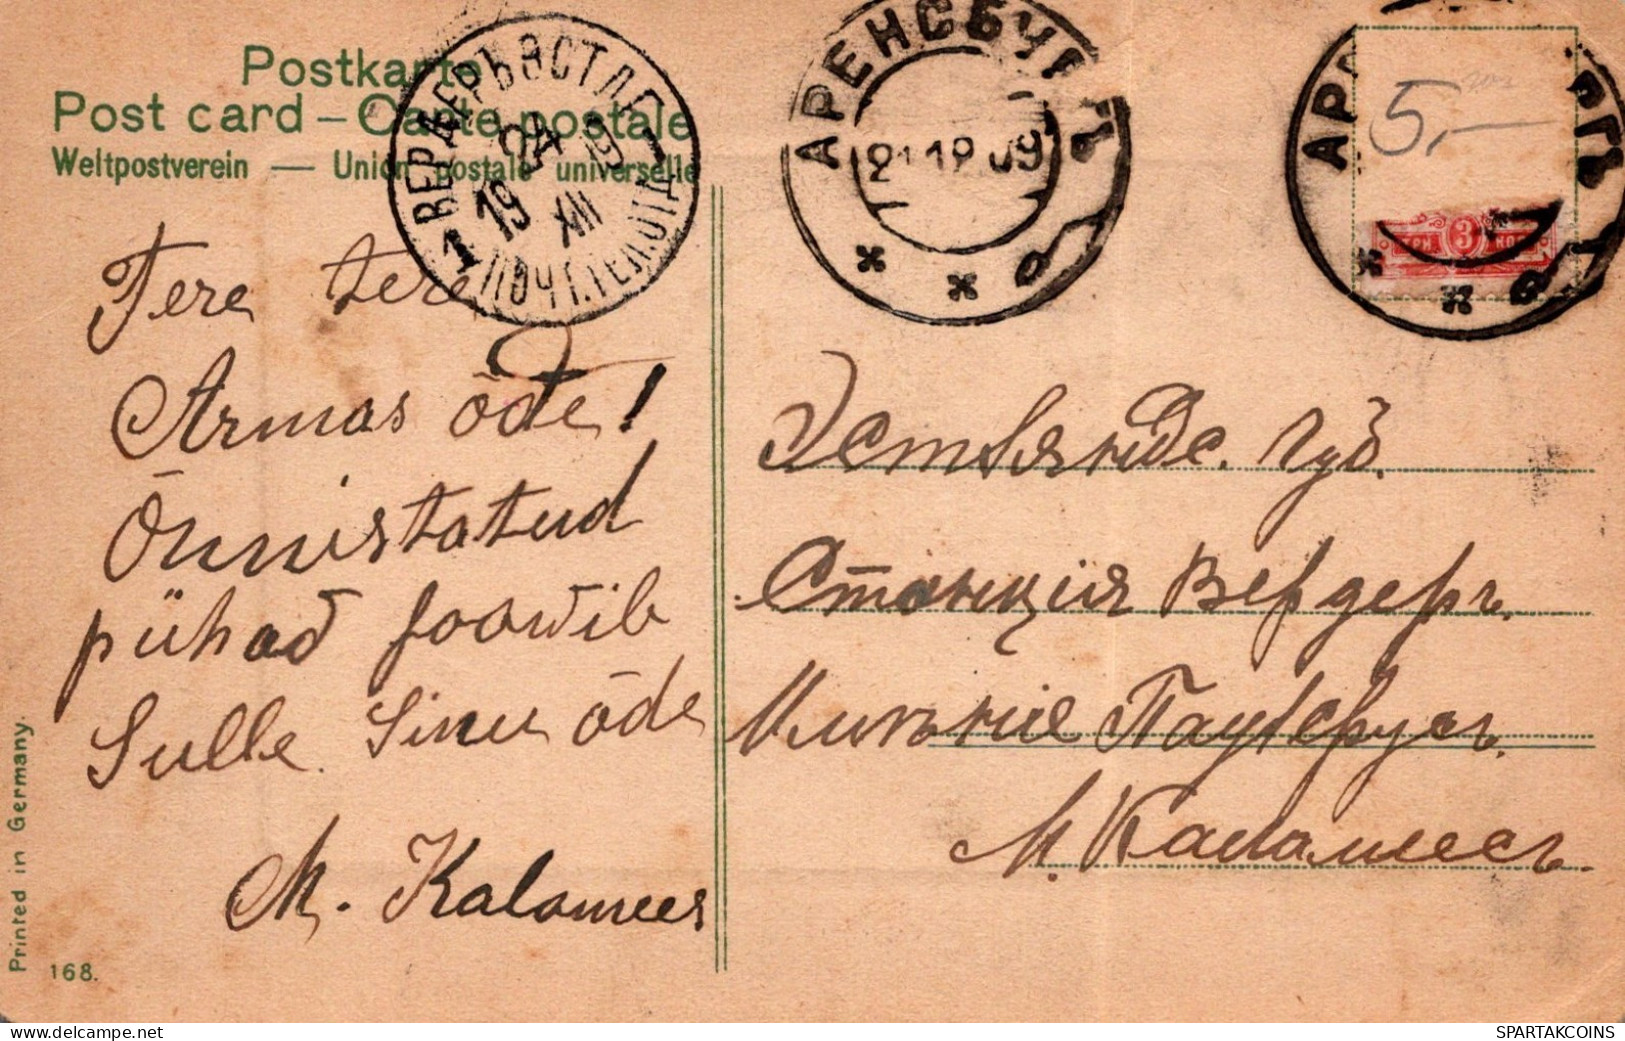 Postkarte
Post card – Carte postale
Weltpostverein — Union postale universelle
ВЕРДЕРЪ ЭСТЛ. Г.
24 XII
19 09
1 ПОЧТ. ТЕЛ. ОТД.
АРЕНСБУРГЪ
21 12 09
АРЕНСБУРГЪ
5,—
ТРИ 3 КОП
Tere tere
Armas õde!
Õnnistatud
pühad soowib
Sulle Sinu õde
M. Kalamees
Эстляндс. губ.
Станція Вердеръ.
М. Каламеесъ.
Printed in Germany
168.
SPARTAKCOINS
www.delcampe.net